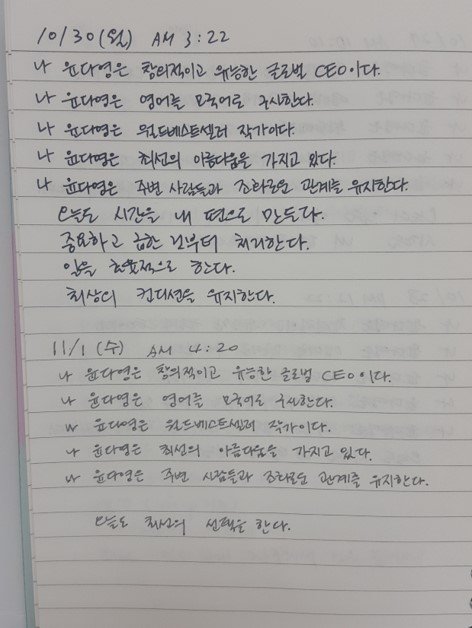 10/30(월) AM 3:22
나 윤다영은 창의적이고 유능한 글로벌 CEO이다.
나 윤다영은 영어를 모국어로 구사한다.
나 윤다영은 월드베스트셀러 작가이다
나 윤다영은 최선의 아름다움을 가지고 있다.
나 윤다영은 주변 사람들과 조화로운 관계를 유지한다.
오늘도 시간을 내 편으로 만든다.
중요하고 급한 것부터 처리한다.
일을 효율적으로 한다.
최상의 컨디션을 유지한다.
11/1(수) AM 4:20
나 윤다영은 창의적이고 유능한 글로벌 CEO이다.
나 윤다영은 영어를 모국어로 구사한다.
나 윤다영은 월드베스트셀러 작가이다.
나 윤다영은 최선의 아름다움을 가지고 있다.
나 윤다영은 주변 사람들과 조화로운 관계를 유지한다.
오늘도 최선의 선택을 한다.